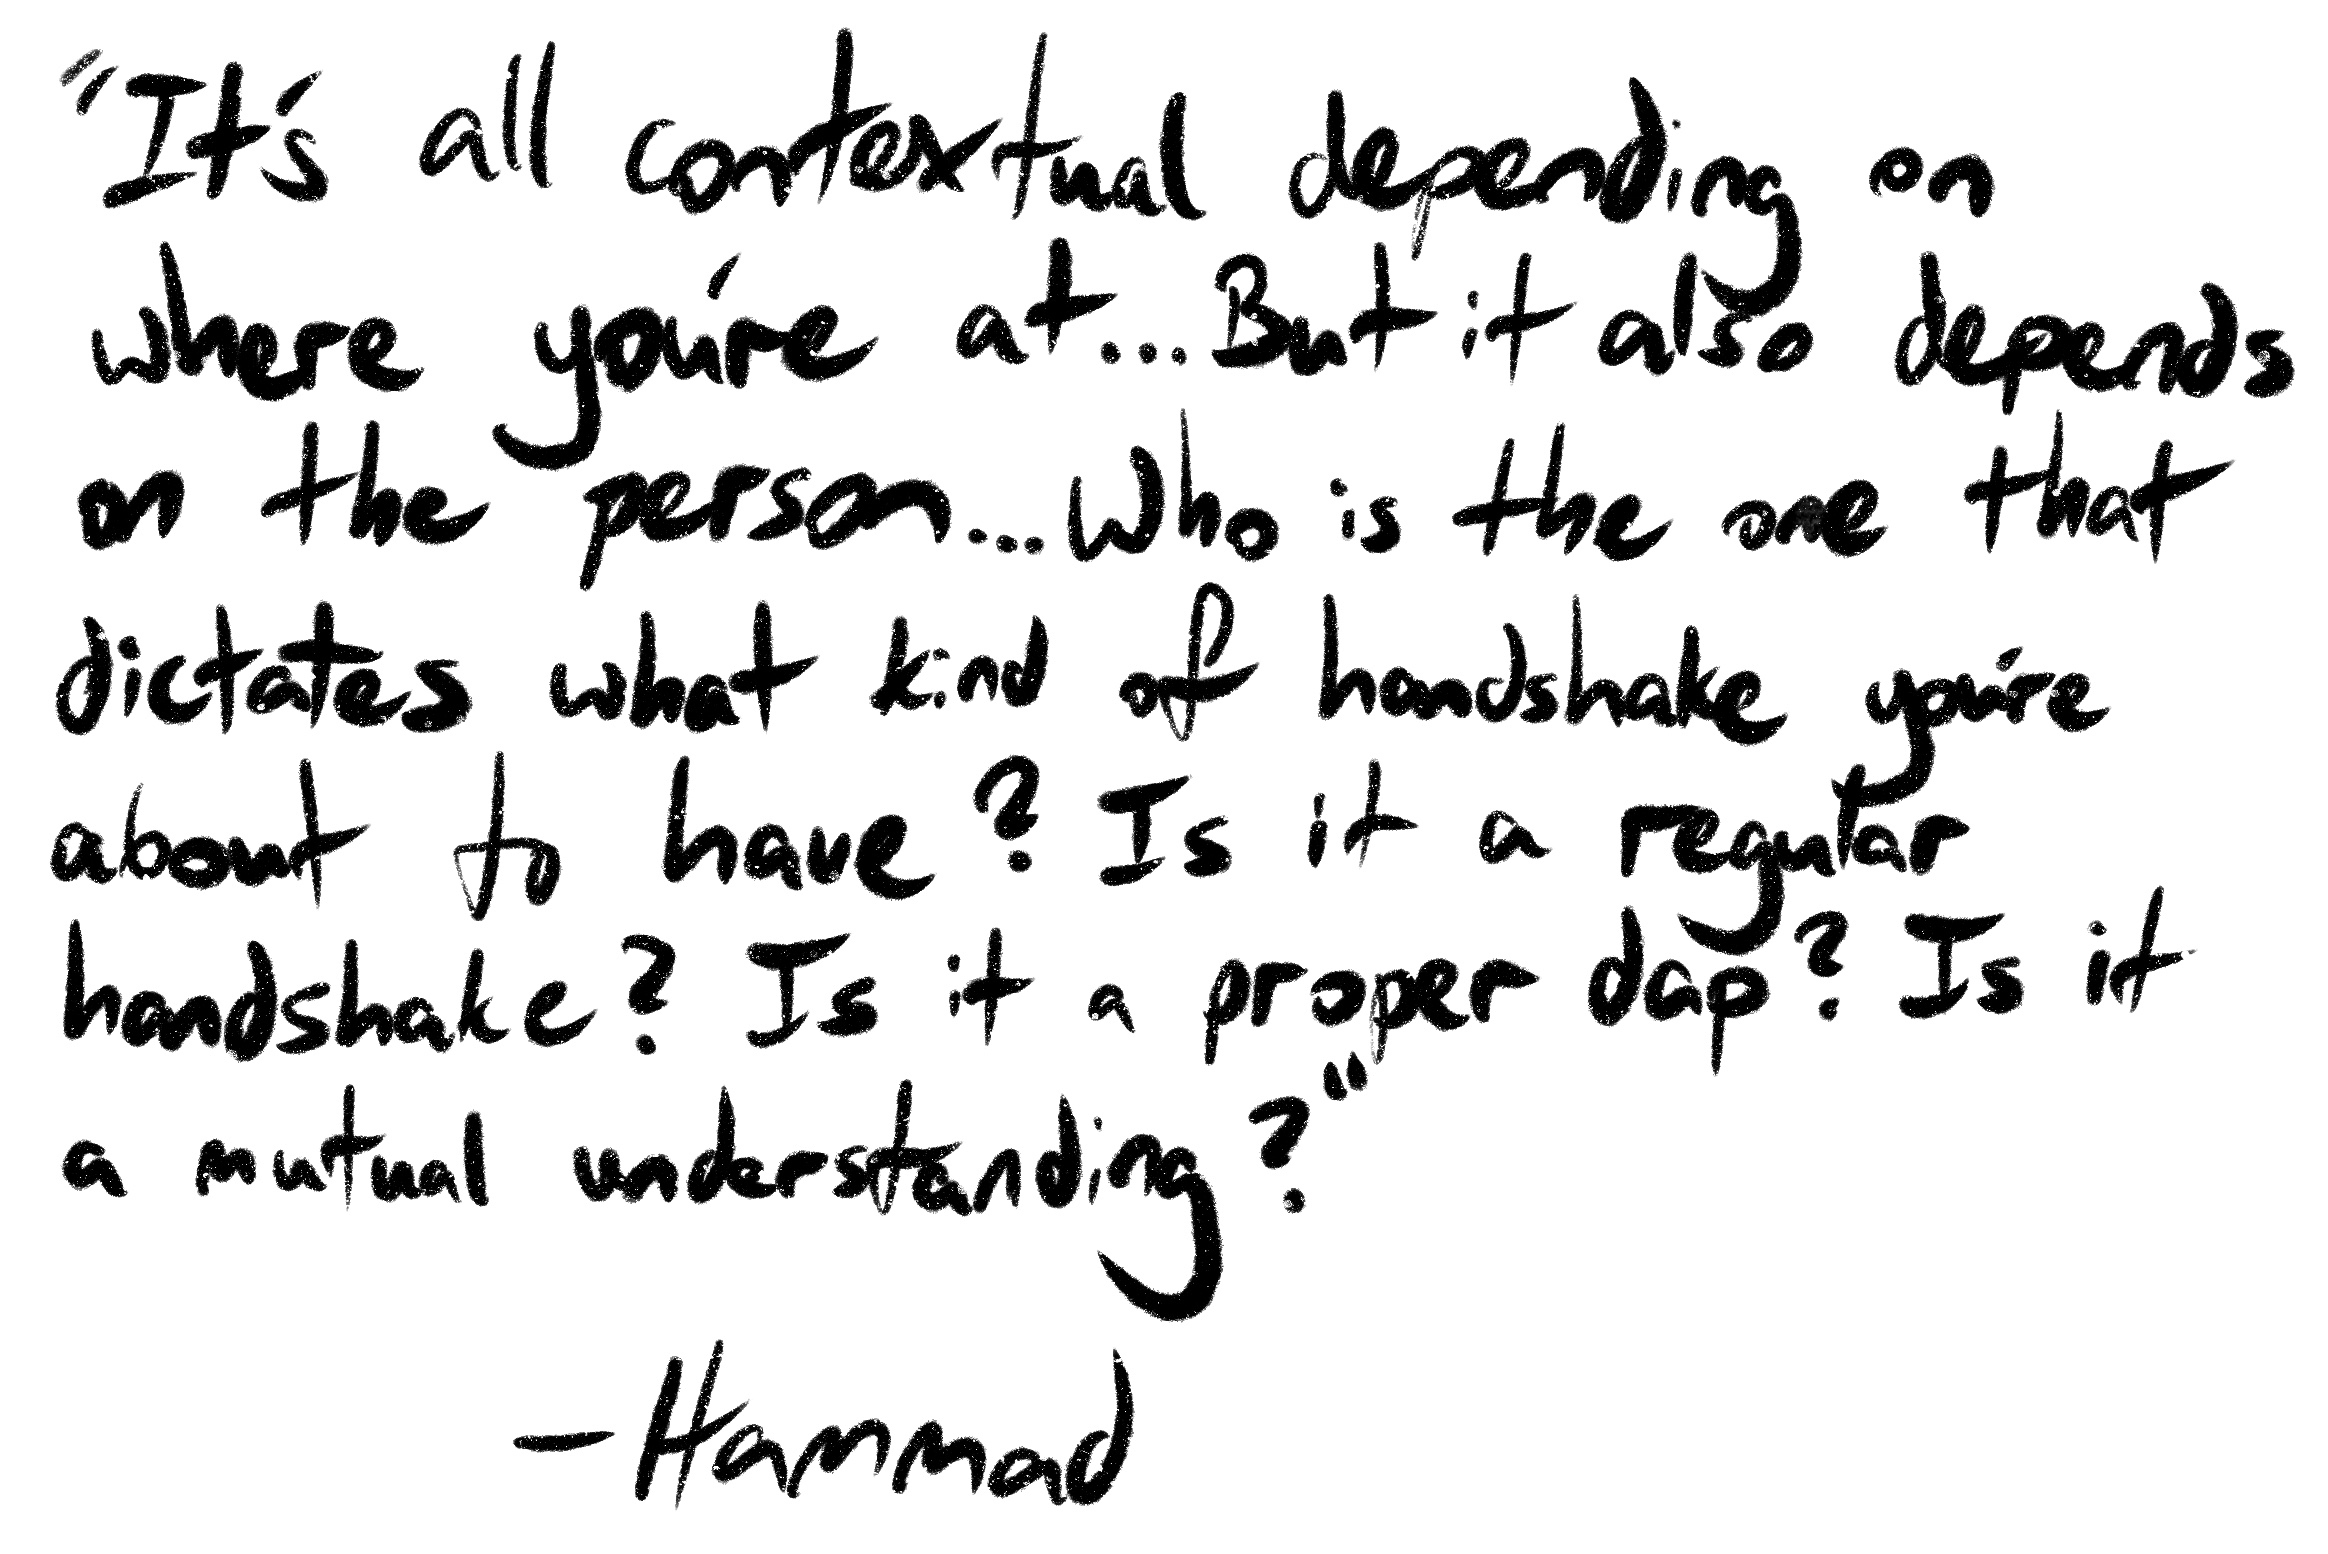 "It's all contextual depending on
where you're at...But it also depends
on the person...Who is the one that
dictates what kind of handshake you're
about to have? Is it a regular
handshake? Is it a proper dap? Is it
a mutual understanding?"
—Hammad